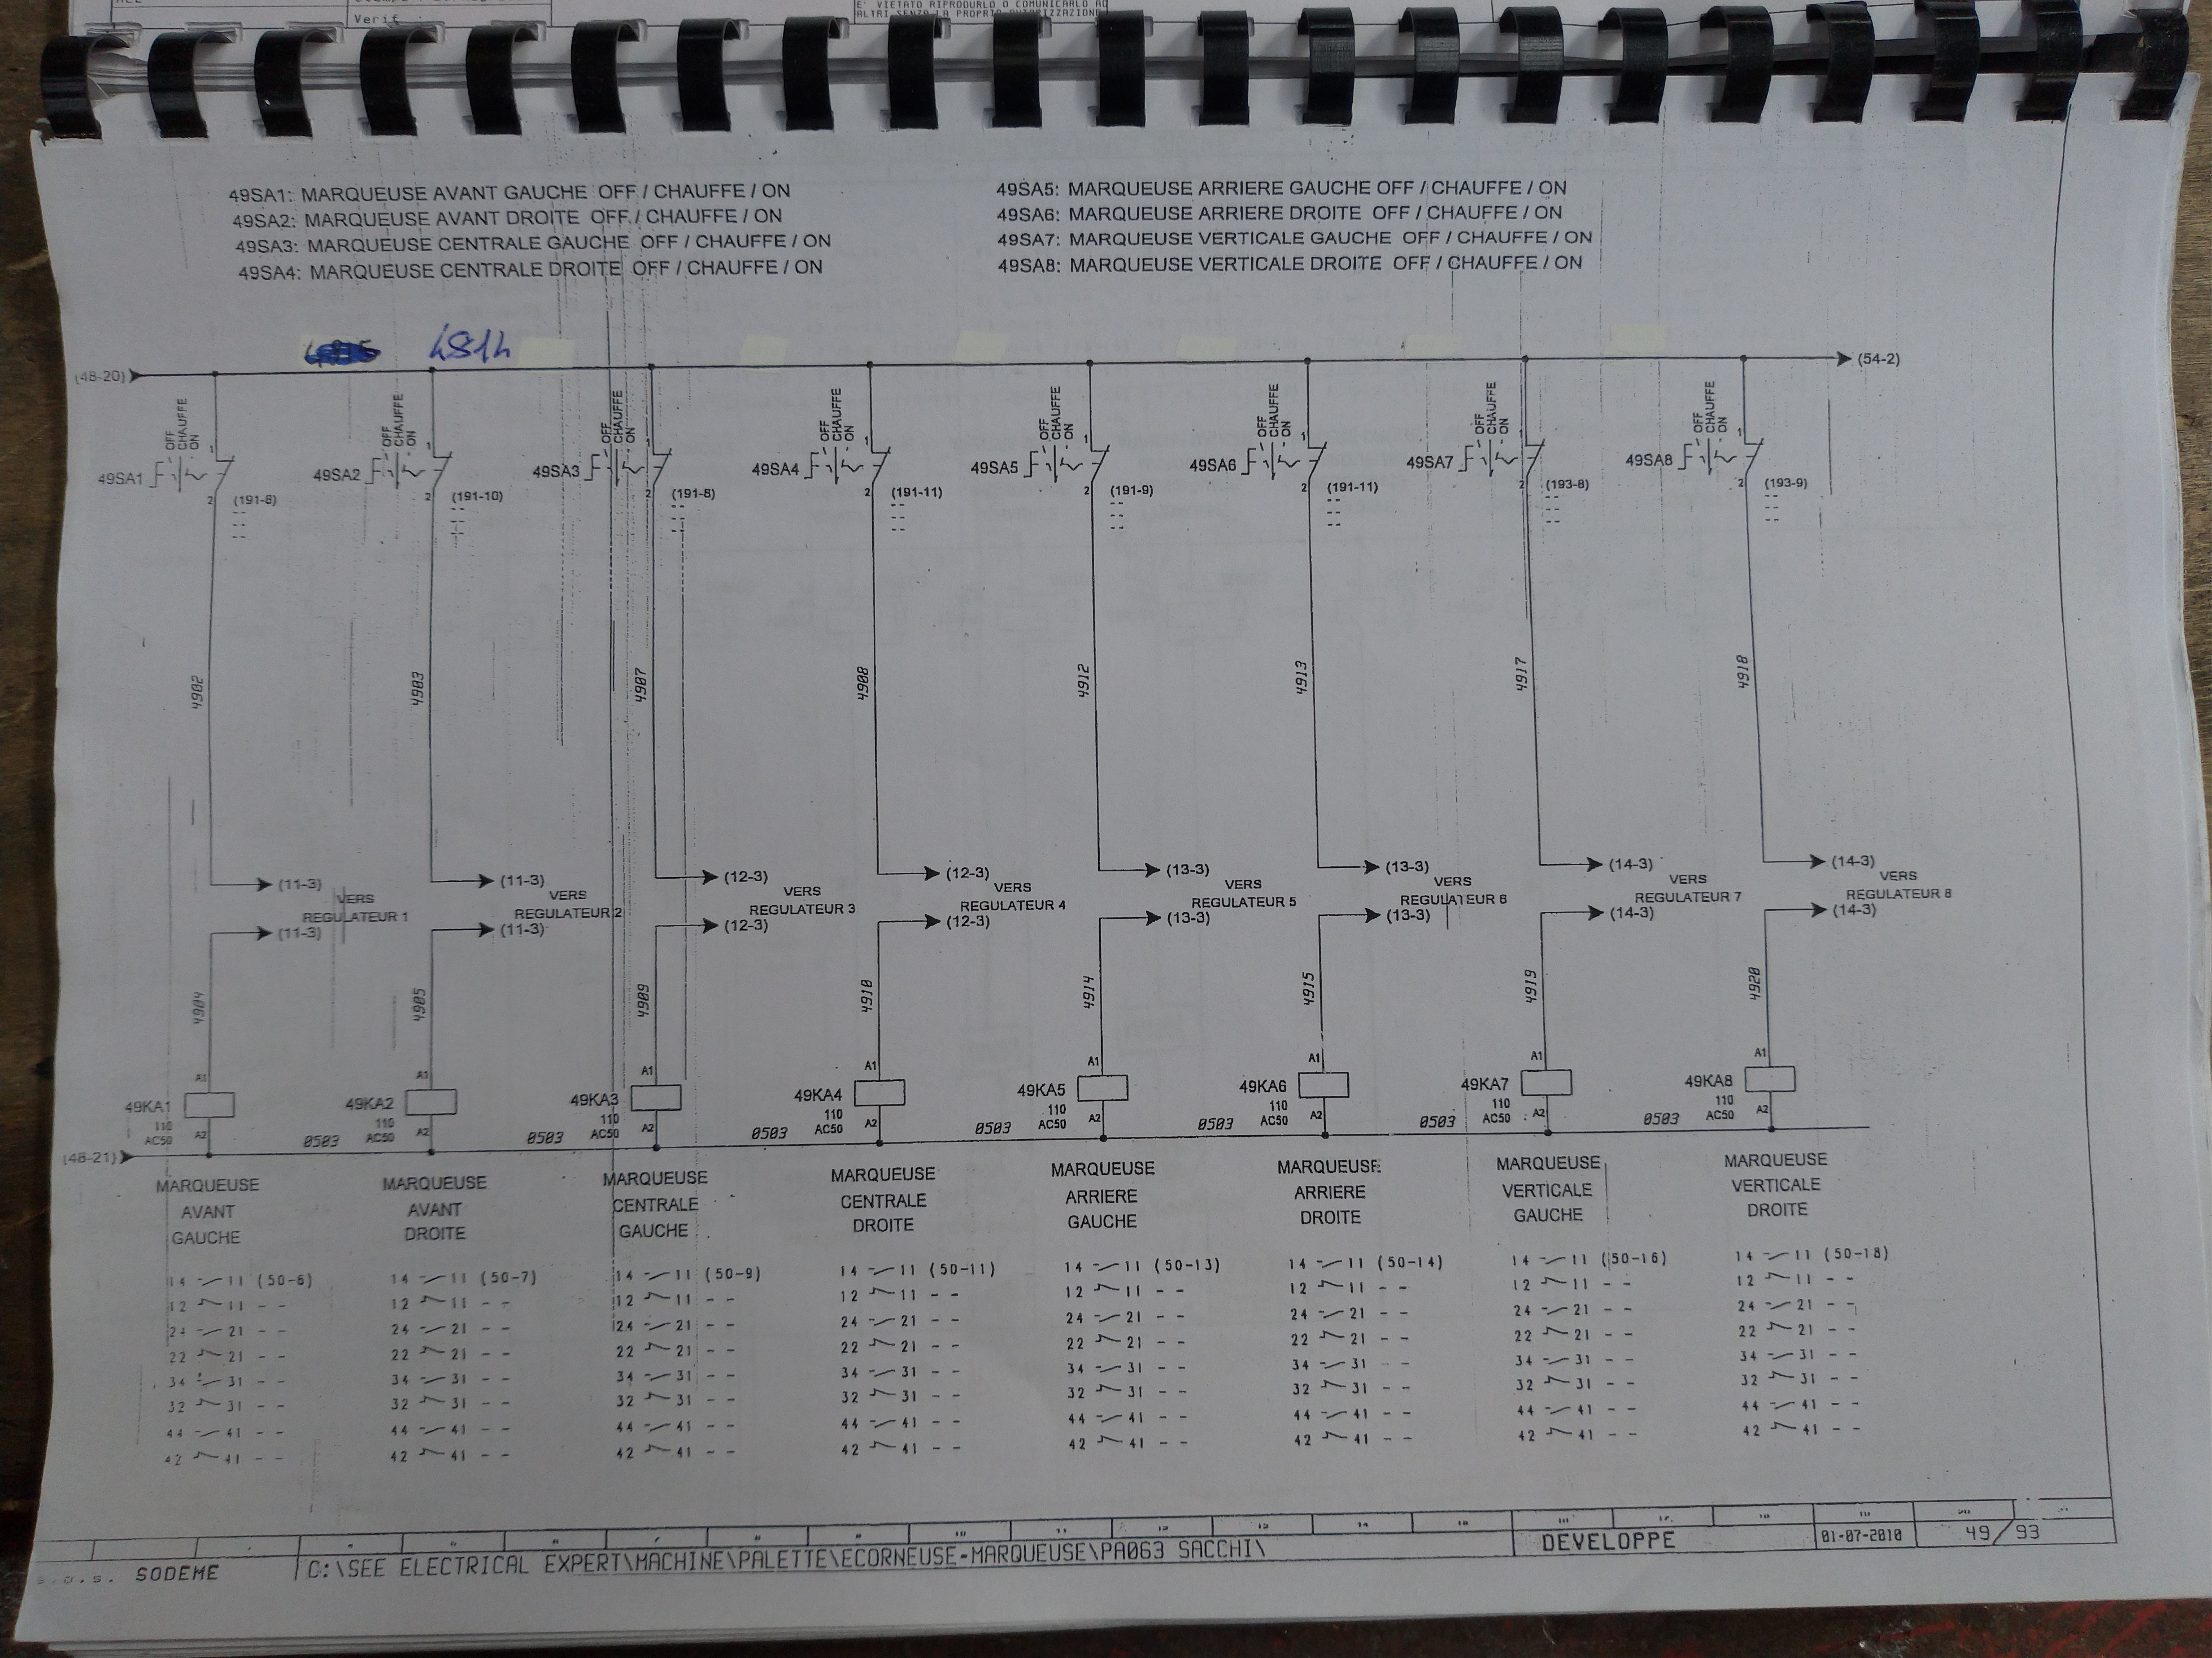 Verif :
E' VIETATO RIPRODURLO O COMUNICARLO AD
ALTRI SENZA LA PROPRIA AUTORIZZAZIONE
49SA1: MARQUEUSE AVANT GAUCHE OFF / CHAUFFE / ON
49SA2: MARQUEUSE AVANT DROITE OFF / CHAUFFE / ON
49SA3: MARQUEUSE CENTRALE GAUCHE OFF / CHAUFFE / ON
49SA4: MARQUEUSE CENTRALE DROITE OFF / CHAUFFE / ON
49SA5: MARQUEUSE ARRIERE GAUCHE OFF / CHAUFFE / ON
49SA6: MARQUEUSE ARRIERE DROITE OFF / CHAUFFE / ON
49SA7: MARQUEUSE VERTICALE GAUCHE OFF / CHAUFFE / ON
49SA8: MARQUEUSE VERTICALE DROITE OFF / CHAUFFE / ON
4814
(48-20) (54-2)
OFF CHAUFFE ON OFF CHAUFFE ON OFF CHAUFFE ON OFF CHAUFFE ON OFF CHAUFFE ON OFF CHAUFFE ON OFF CHAUFFE ON OFF CHAUFFE ON
1 1 1 1 1 1 1 1
49SA1 49SA2 49SA3 49SA4 49SA5 49SA6 49SA7 49SA8
2 2 2 2 2 2 2 2
(191-8) (191-10) (191-8) (191-11) (191-9) (191-11) (193-8) (193-9)
4902 4903 4907 4908 4912 4913 4917 4918
(11-3) (11-3) (12-3) (12-3) (13-3) (13-3) (14-3) (14-3)
VERS VERS VERS VERS VERS VERS VERS VERS
REGULATEUR 1 REGULATEUR 2 REGULATEUR 3 REGULATEUR 4 REGULATEUR 5 REGULATEUR 6 REGULATEUR 7 REGULATEUR 8
(11-3) (11-3) (12-3) (12-3) (13-3) (13-3) (14-3) (14-3)
4904 4905 4909 4910 4914 4915 4919 4920
A1 A1 A1 A1 A1 A1 A1 A1
49KA1 49KA2 49KA3 49KA4 49KA5 49KA6 49KA7 49KA8
110 110 110 110 110 110 110 110
AC50 AC50 AC50 AC50 AC50 AC50 AC50 AC50
A2 A2 A2 A2 A2 A2 A2 A2
0503 0503 0503 0503 0503 0503 0503
(48-21)
MARQUEUSE MARQUEUSE MARQUEUSE MARQUEUSE MARQUEUSE MARQUEUSE MARQUEUSE MARQUEUSE
AVANT AVANT CENTRALE CENTRALE ARRIERE ARRIERE VERTICALE VERTICALE
GAUCHE DROITE GAUCHE DROITE GAUCHE DROITE GAUCHE DROITE
14 11 (50-6) 14 11 (50-7) 14 11 (50-9) 14 11 (50-11) 14 11 (50-13) 14 11 (50-14) 14 11 (50-16) 14 11 (50-18)
12 11 - - 12 11 - - 12 11 - - 12 11 - - 12 11 - - 12 11 - - 12 11 - - 12 11 - -
24 21 - - 24 21 - - 24 21 - - 24 21 - - 24 21 - - 24 21 - - 24 21 - - 24 21 - -
22 21 - - 22 21 - - 22 21 - - 22 21 - - 22 21 - - 22 21 - - 22 21 - - 22 21 - -
34 31 - - 34 31 - - 34 31 - - 34 31 - - 34 31 - - 34 31 - - 34 31 - - 34 31 - -
32 31 - - 32 31 - - 32 31 - - 32 31 - - 32 31 - - 32 31 - - 32 31 - - 32 31 - -
44 41 - - 44 41 - - 44 41 - - 44 41 - - 44 41 - - 44 41 - - 44 41 - - 44 41 - -
42 41 - - 42 41 - - 42 41 - - 42 41 - - 42 41 - - 42 41 - - 42 41 - - 42 41 - -
10 11 12 13 14
SODEME C:\SEE ELECTRICAL EXPERT\MACHINE\PALETTE\ECORNEUSE-MARQUEUSE\PA063 SACCHI\ DEVELOPPE 01-07-2010 49/93